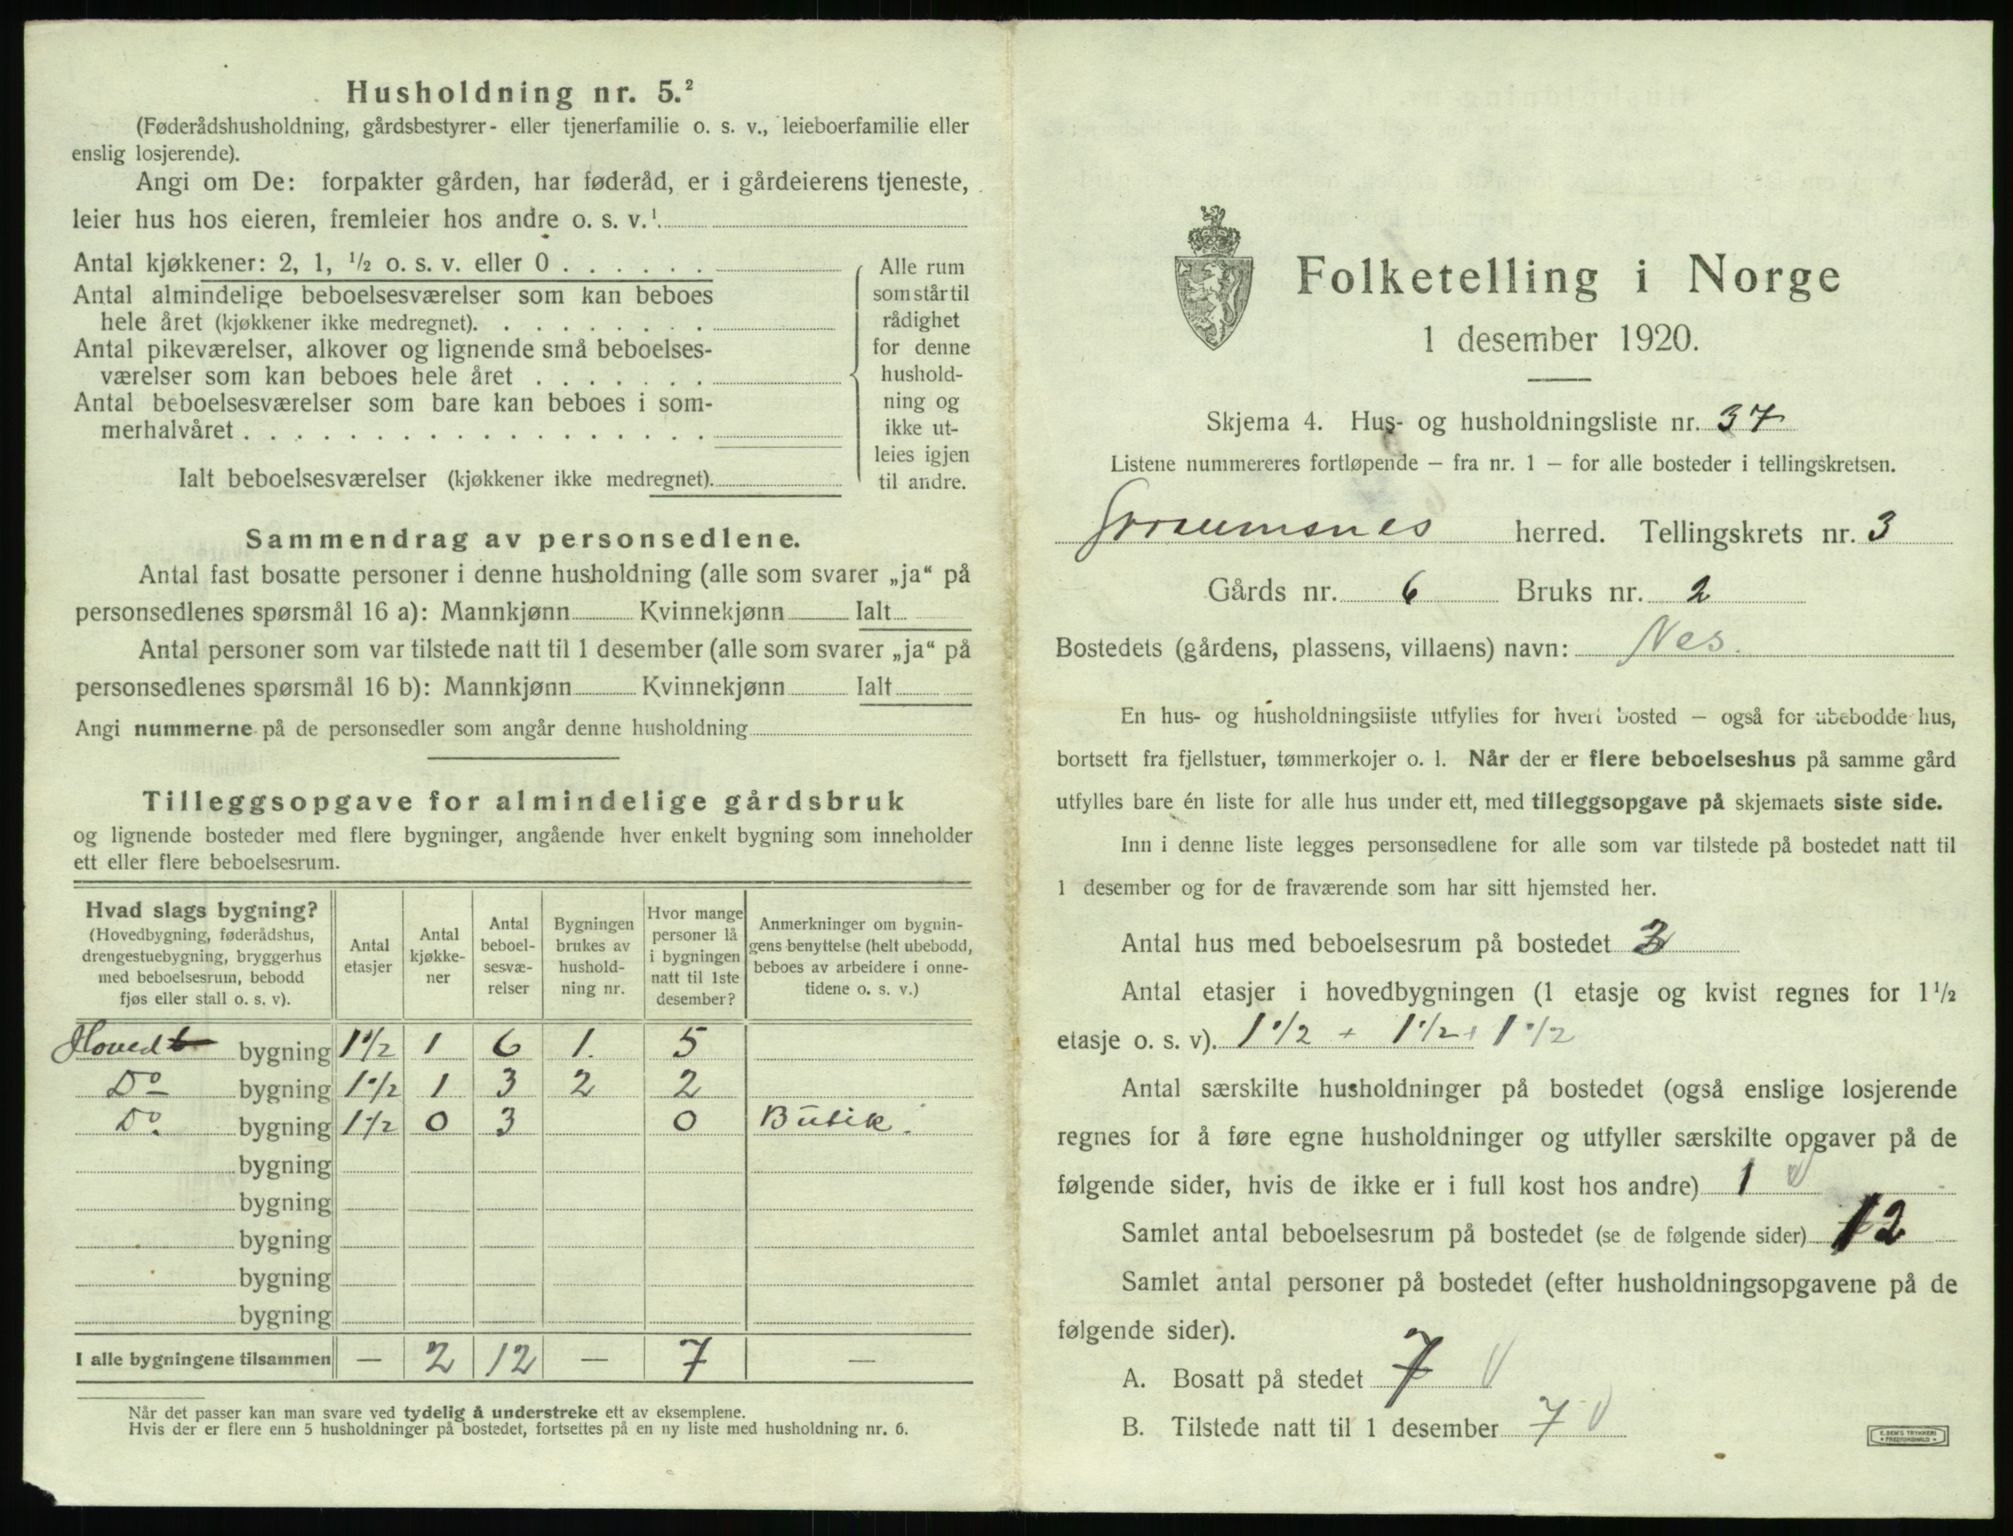 Husholdning nr. 5.²
(Føderådshusholdning, gårdsbestyrer- eller tjenerfamilie o. s. v., leieboerfamilie eller
enslig losjerende).
Angi om De: forpakter gården, har føderåd, er i gårdeierens tjeneste,
leier hus hos eieren, fremleier hos andre o. s. v.¹
Antal kjøkkener: 2, 1, ½ o. s. v. eller 0
Antal almindelige beboelsesværelser som kan beboes
hele året (kjøkkener ikke medregnet).
Antal pikeværelser, alkover og lignende små beboelses-
værelser som kan beboes hele året
Antal beboelsesværelser som bare kan beboes i som-
merhalvåret
Ialt beboelsesværelser (kjøkkener ikke medregnet).
Alle rum
som står til
rådighet
for denne
hushold-
ning og
ikke ut-
leies igjen
til andre.
Sammendrag av personsedlene.
Antal fast bosatte personer i denne husholdning (alle som svarer „ja“ på
personsedlenes spørsmål 16 a): Mannkjønn Kvinnekjønn Ialt
Antal personer som var tilstede natt til 1 desember (alle som svarer „ja“ på
personsedlenes spørsmål 16 b): Mannkjønn Kvinnekjønn Ialt
Angi nummerne på de personsedler som angår denne husholdning
Tilleggsopgave for almindelige gårdsbruk
og lignende bosteder med flere bygninger, angående hver enkelt bygning som inneholder
ett eller flere beboelsesrum.
Hvad slags bygning?
(Hovedbygning, føderådshus,
drengestuebygning, bryggerhus
med beboelsesrum, bebodd
fjøs eller stall o. s. v).
Antal
etasjer
Antal
kjøkke-
ner
Antal
beboel-
sesvæ-
relser
Bygningen
brukes av
hushold-
ning nr.
Hvor mange
personer lå
i bygningen
natt til 1ste
desember?
Anmerkninger om bygnin-
gens benyttelse (helt ubebodd,
beboes av arbeidere i onne-
tidene o. s. v.)
Hovedb bygning 1½ 1 6 1. 5
Do bygning 1½ 1 3 2 2
Do. bygning 1½ 0 3 0 Butik.
bygning
bygning
bygning
bygning
bygning
I alle bygningene tilsammen — 2 12 — 7 —
Når det passer kan man svare ved tydelig å understreke ett av eksemplene.
Hvis der er flere enn 5 husholdninger på bostedet, fortsettes på en ny liste med husholdning nr. 6.
Folketelling i Norge
1 desember 1920.
Skjema 4. Hus- og husholdningsliste nr. 37
Listene nummereres fortløpende — fra nr. 1 — for alle bosteder i tellingskretsen.
herred. Tellingskrets nr. 3
Gårds nr. 6 Bruks nr. 2
Bostedets (gårdens, plassens, villaens) navn: Nes.
En hus- og husholdningsliste utfylles for hvert bosted — også for ubebodde hus,
bortsett fra fjellstuer, tømmerkojer o. l. Når der er flere beboelseshus på samme gård
utfylles bare én liste for alle hus under ett, med tilleggsopgave på skjemaets siste side.
Inn i denne liste legges personsedlene for alle som var tilstede på bostedet natt til
1 desember og for de fraværende som har sitt hjemsted her.
Antal hus med beboelsesrum på bostedet 3
Antal etasjer i hovedbygningen (1 etasje og kvist regnes for 1½
etasje o. s. v). 1½ + 1½ + 1½
Antal særskilte husholdninger på bostedet (også enslige losjerende
regnes for å føre egne husholdninger og utfyller særskilte opgaver på de
følgende sider, hvis de ikke er i full kost hos andre) 1
Samlet antal beboelsesrum på bostedet (se de følgende sider) 12
Samlet antal personer på bostedet (efter husholdningsopgavene på de
følgende sider).
A. Bosatt på stedet 7
B. Tilstede natt til 1 desember 7